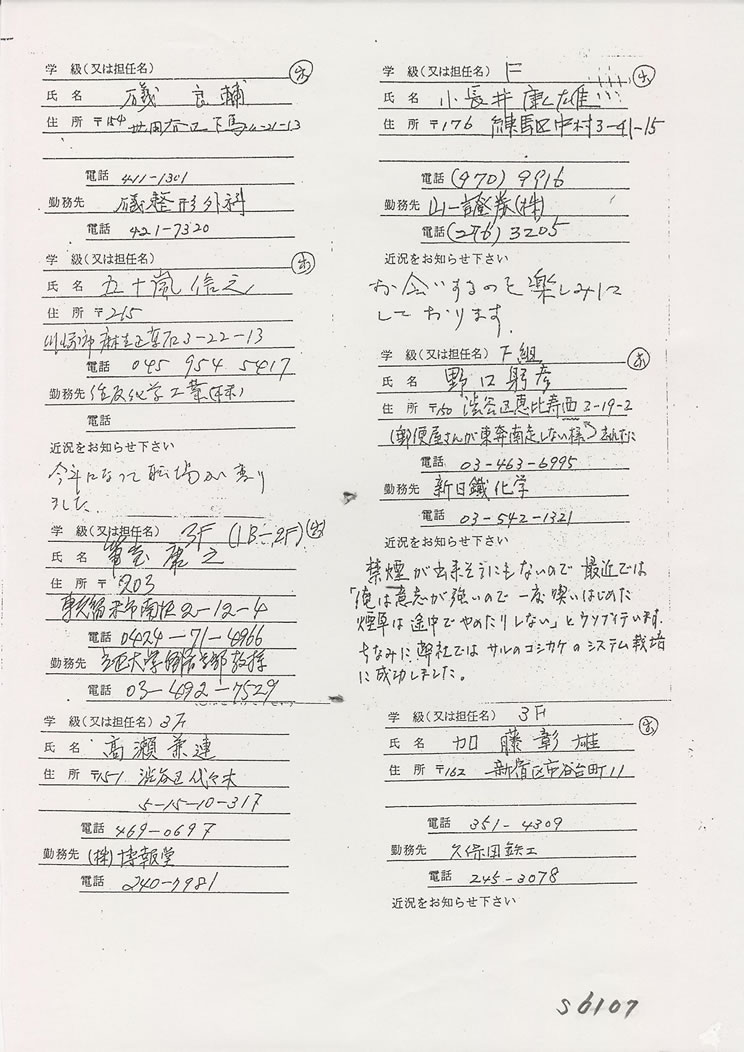 学 級(又は担任名)
氏 名 磯 良輔
住 所 〒154 世田谷区下馬4-21-13
電話 411-1301
勤務先 磯整形外科
電話 421-7320
学 級(又は担任名)
氏 名 五十嵐信之
住 所 〒215
川崎市麻生区 3-22-13
電話 045 954 5417
勤務先 住友化学工業(株)
電話
近況をお知らせ下さい
今年になって職場が変り
ました.
学 級(又は担任名) 3F (1B-2F)
氏 名 康之
住 所 〒 203
市南沢2-12-4
電話 0424-71-4966
勤務先 立正大学
電話 03-492-7529
学 級(又は担任名) 3F
氏 名 高瀬兼連
住 所 〒151 渋谷区代々木
5-15-10-317
電話 469-0697
勤務先 (株)博報堂
電話 240-7981
学 級(又は担任名) F
氏 名 小長井康雄
住 所 〒176 練馬区中村3-41-15
電話 (970) 9916
勤務先 山一證券(株)
電話 (276) 3205
近況をお知らせ下さい
お会いするのを楽しみに
しております.
学 級(又は担任名) F組
氏 名 野口 彦
住 所 〒150 渋谷区恵比寿西2-19-2
(郵便屋さんが東奔南走しない様に
電話 03-463-6995
勤務先 新日鐵化学
電話 03-542-1321
近況をお知らせ下さい
禁煙が出来そうにもないので 最近では
「俺は意志が強いので 一度 喫いはじめた
煙草は 途中で やめたりしない」と ウソブイています.
ちなみに 弊社では サルのコシカケのシステム栽培
に成功しました。
学 級(又は担任名) 3F
氏 名 加藤彰雄
住 所 〒162 新宿区市谷台町11
電話 351-4309
勤務先 久保田鉄工
電話 245-3078
近況をお知らせ下さい
S6107